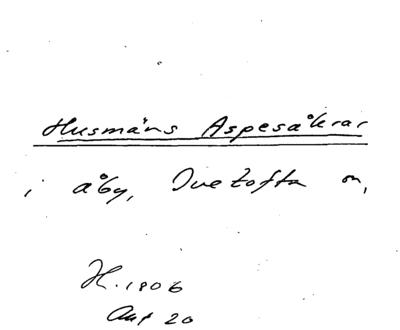 Husmäns Aspesåkrar
i åby, Ivetofta sn,
H. 1806
Auf 20